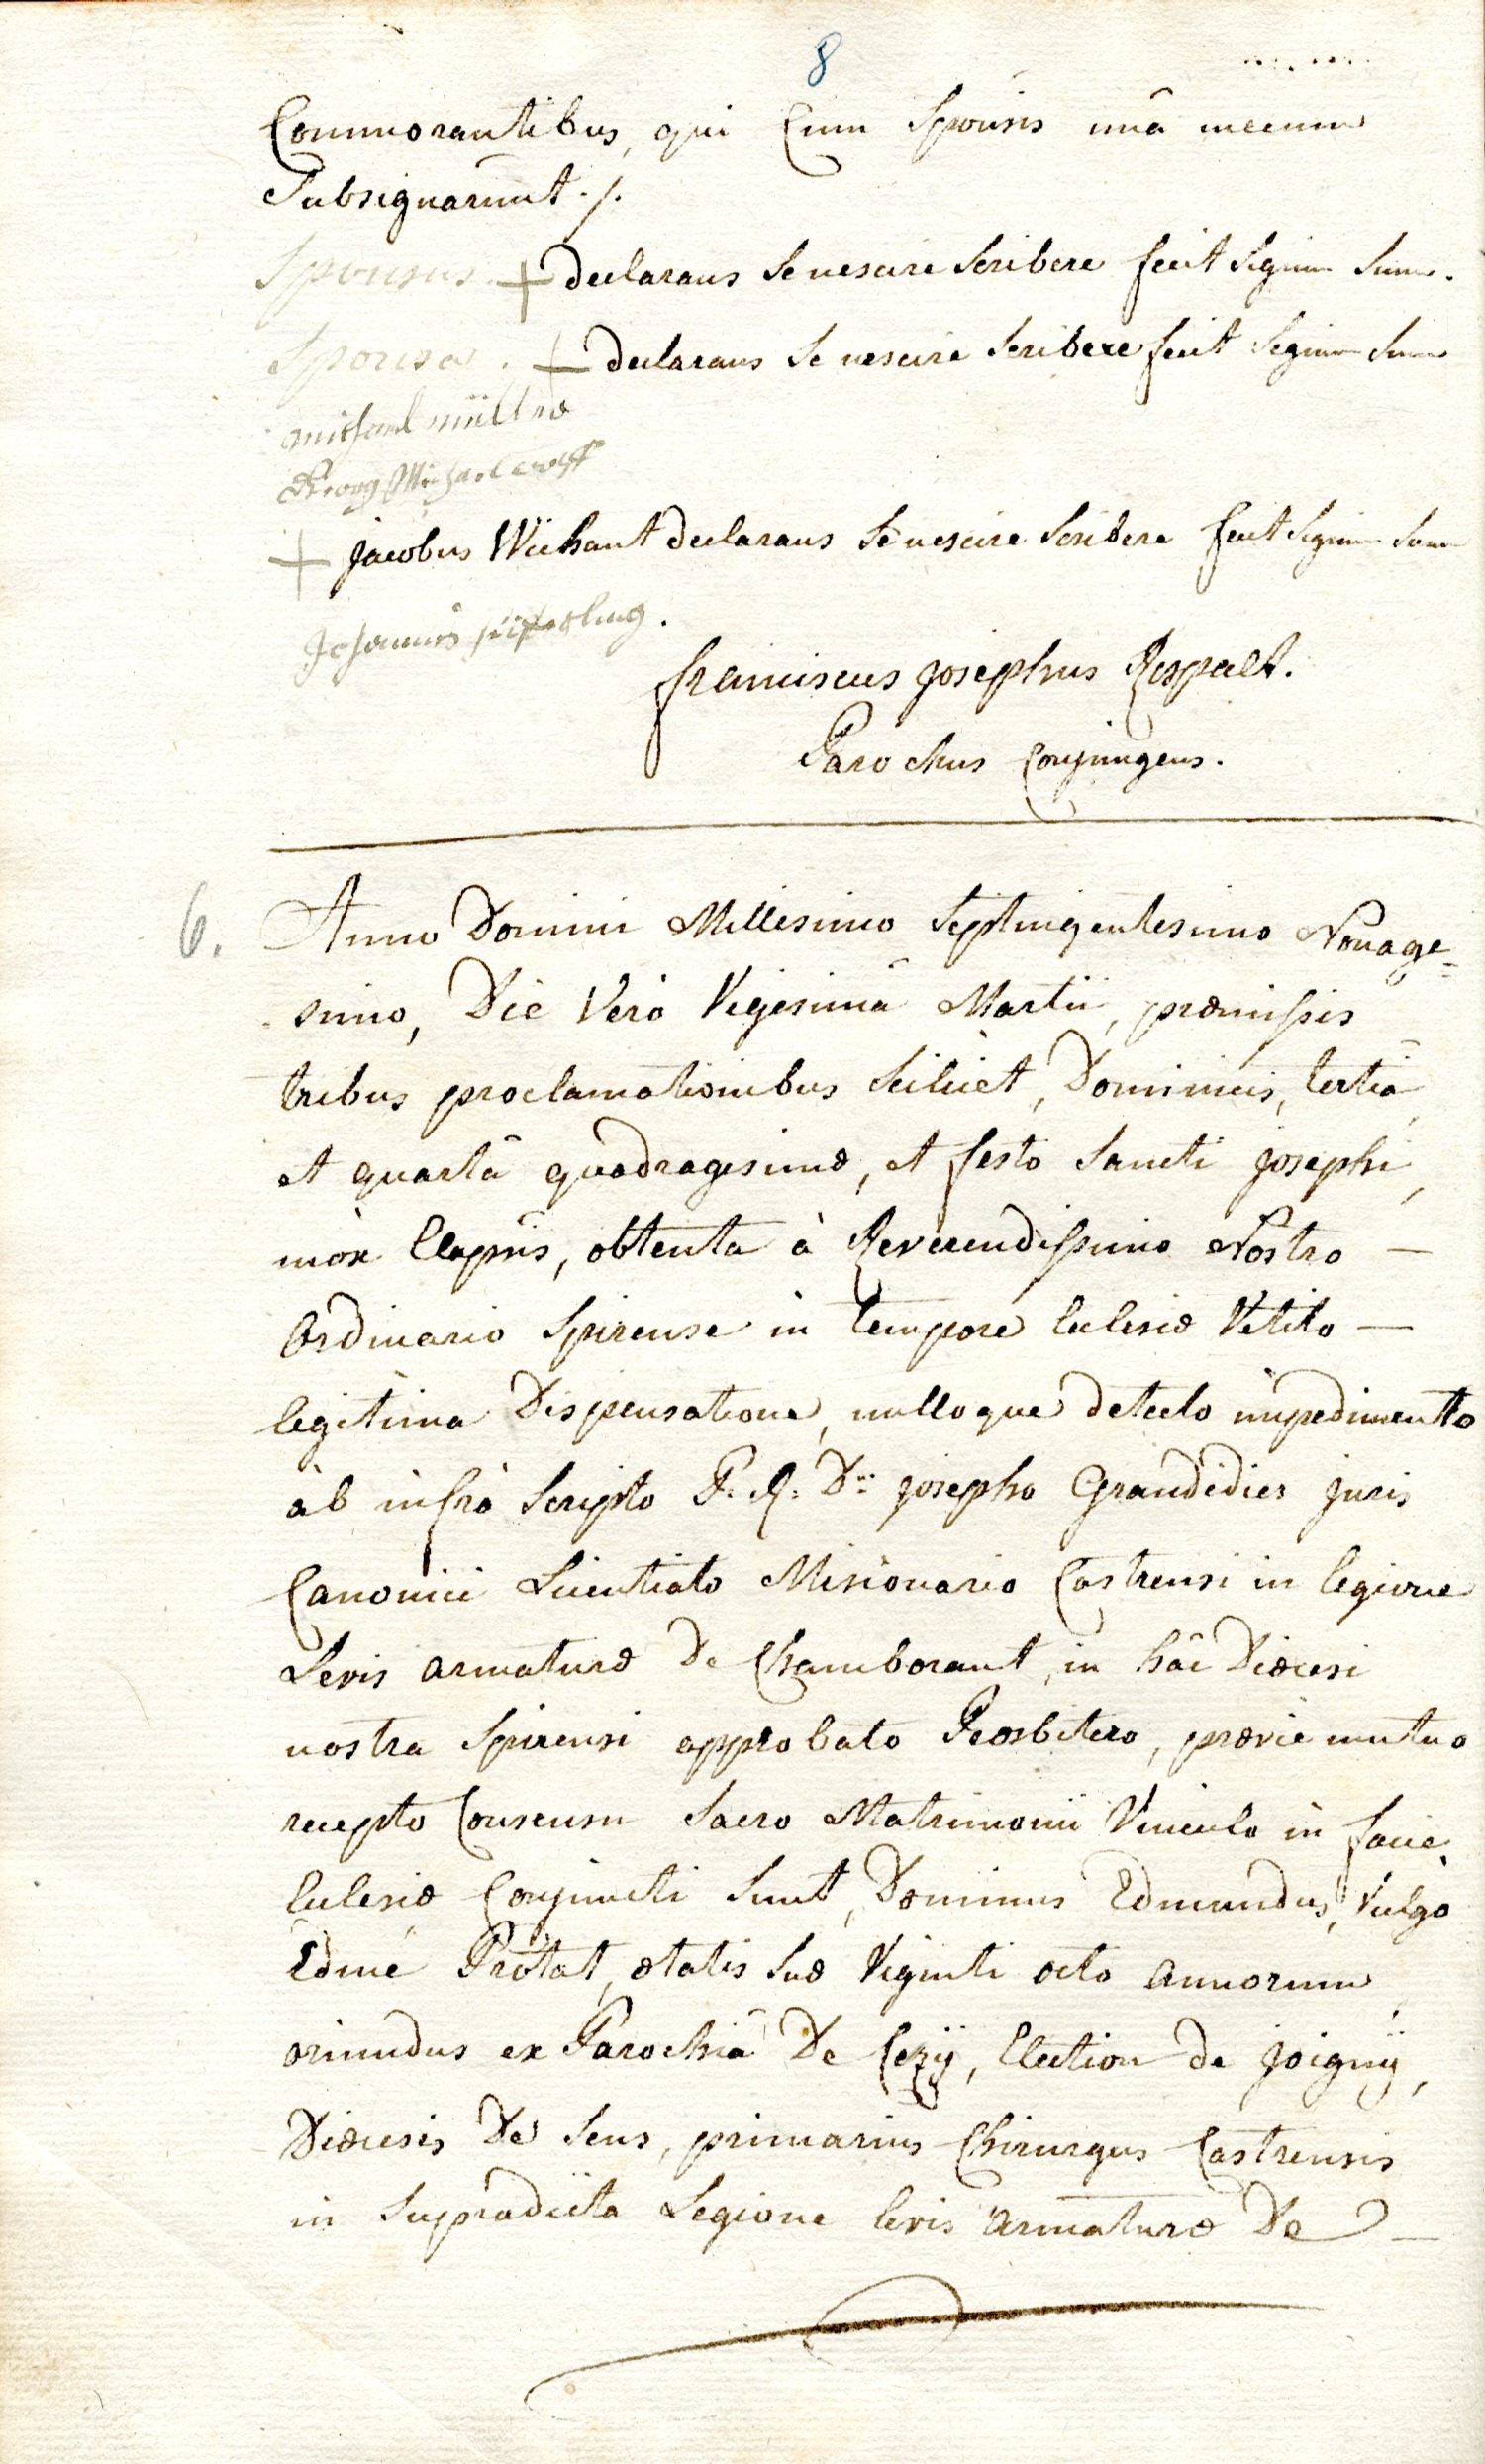 8
Commorantibus, qui Cum Sponsis unâ mecum
Subsignarunt ./.
Sponsus. + declarans Se nescire Scribere fecit Signum Suum.
Sponsa. + declarans Se nescire Scribere fecit Signum Suum
Michael müller
Georg Michael
+ jacobus Wiehant declarans Se nescire Scribere fecit Signum Suum
Johannes
franciscus josephus Respalt.
Parochus Conjungens.
6. Anno Domini Millesimo Septingentesimo Nonage=
simo, Die Verò Vigesimâ Martii, præmissis
tribus proclamationibus Scilicet, Dominicis, tertiâ
et quartâ quadragesimæ, et festo Sancti josephi,
mòx Elapsis, obtenta à Reverendissimo Nostro —
Ordinario Spirense in tempore Eclesiæ Vetito —
legitima Dispensatione, nulloque detecto impedimento
àb infrà Scripto P. R. D: josepho Grandidier juris
Canonici Licentiato Misionario Castrensi in legione
Levis armaturæ De Chamborant, in hâc Diœcesi
nostra Spirensi approbato Presbitero, prævie mutuo
recepto Consensu Sacro Matrimonii Vinculo in facie
Eclesiæ Conjuncti Sunt, Dominus Edmundus, Vulgo
Edmé Protat, ætatis Suæ Viginti octo annorum,
oriundus ex Parochiâ De Cezÿ, Election de joignÿ,
Diœcesis De Sens, primarius Chirurgus Castrensis
in Supradicta Legione levis armaturæ De —